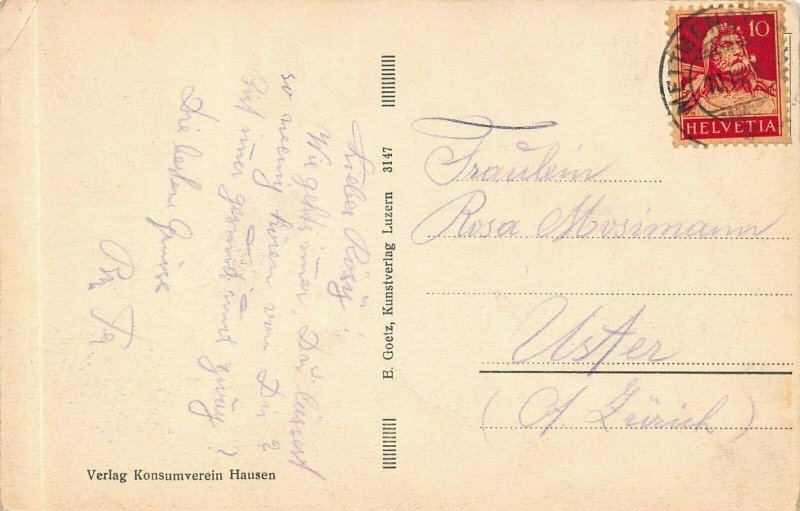 Liebes Rösy!
Wie geht's imer, Du lässest
so wenig hören von Dir?
Bist imer gesund und
Die besten Grüsse
Verlag Konsumverein Hausen
E. Goetz, Kunstverlag Luzern 3147
10
HELVETIA
Fräulein
Rosa Mosimann
Uster
(Ct. Zürich)